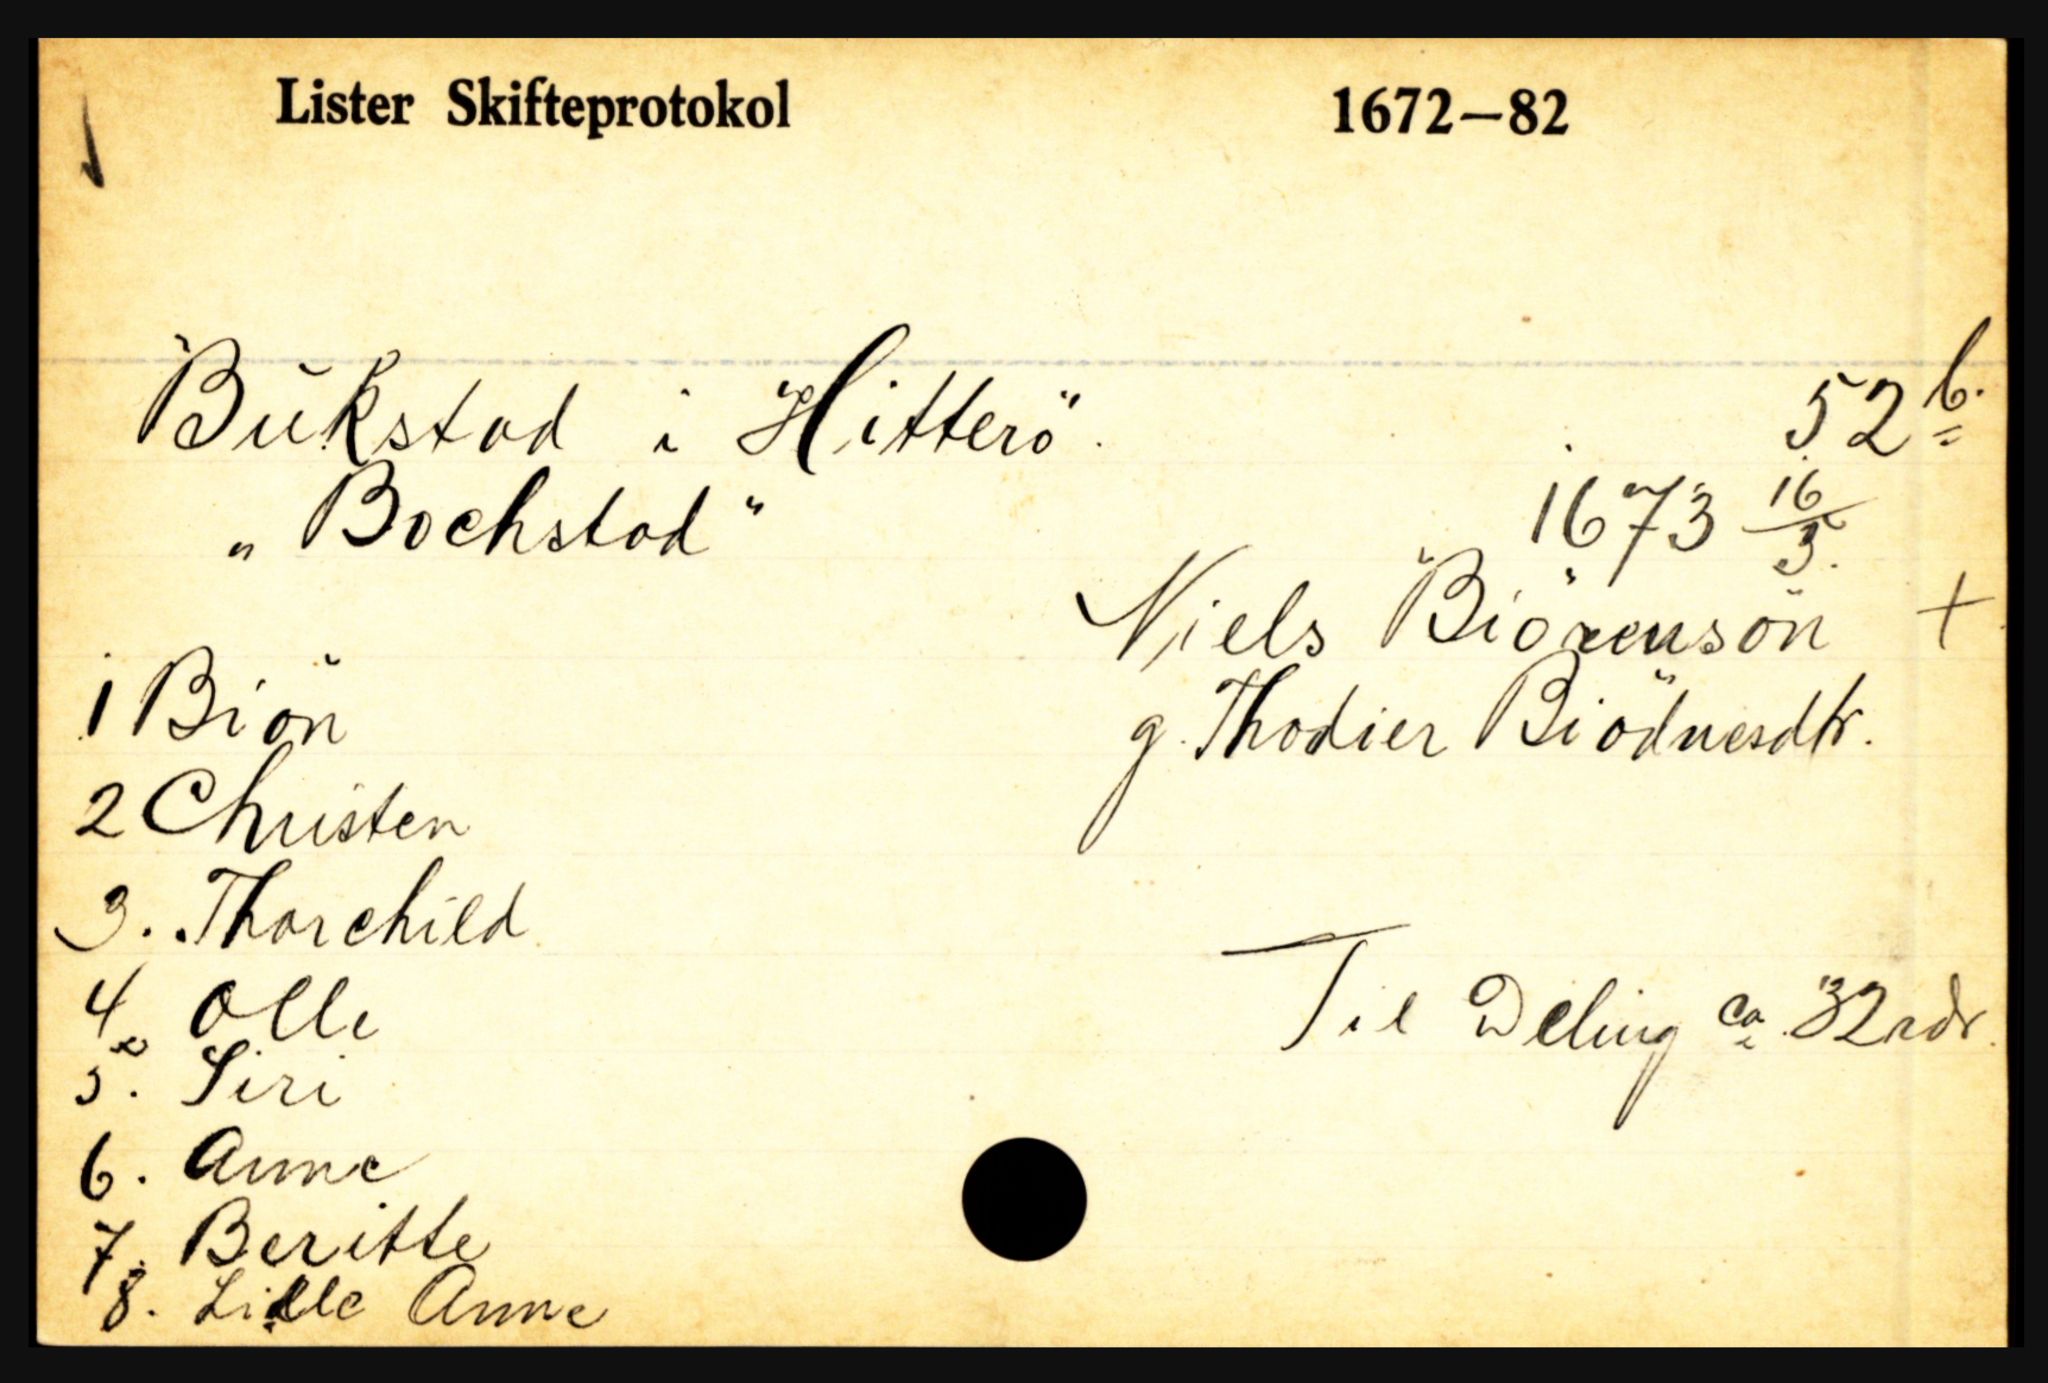 Lister Skifteprotokol 1672–82
Bukstad i Hitterö. 52 b.
"Bochstad" 1673 16/5.
Niels Biörensön +
1 Biön g. Thodier Biödnesdtr.
2 Christen
3. Thorchild
4. Olle Til Deling ca 32 rdr.
5. Siri
6. Anne
7. Beritte
8. Lille Anne